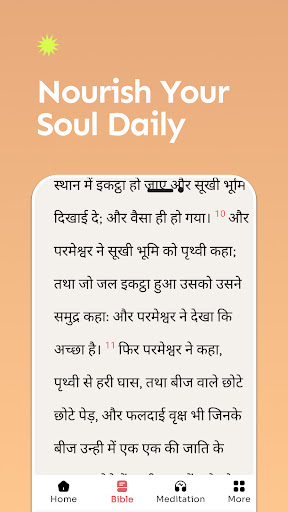 Nourish Your
Soul Daily
स्थान में इकट्ठा हो जाए और सूखी भूमि
दिखाई दे; और वैसा ही हो गया। 10 और
परमेश्वर ने सूखी भूमि को पृथ्वी कहा;
तथा जो जल इकट्ठा हुआ उसको उसने
समुद्र कहाः और परमेश्वर ने देखा कि
अच्छा है। 11 फिर परमेश्वर ने कहा,
पृथ्वी से हरी घास, तथा बीज वाले छोटे
छोटे पेड़, और फलदाई वृक्ष भी जिनके
बीज उन्ही में एक एक की जाति के
Home Bible Meditation More